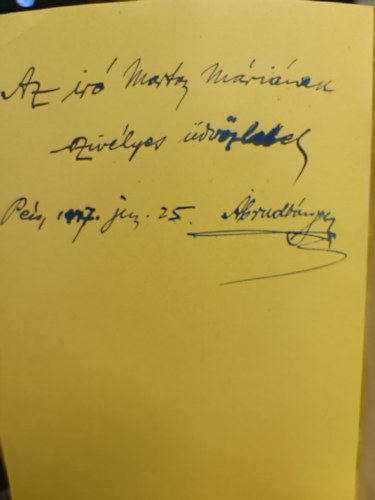 Az író Martos Máriának
szívélyes üdvözlettel
Pécs, jun. 25. Abrudbányay